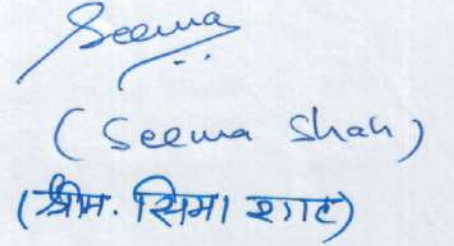 Seema
(Seema Shah)
(श्रीम. सिमा शाह)